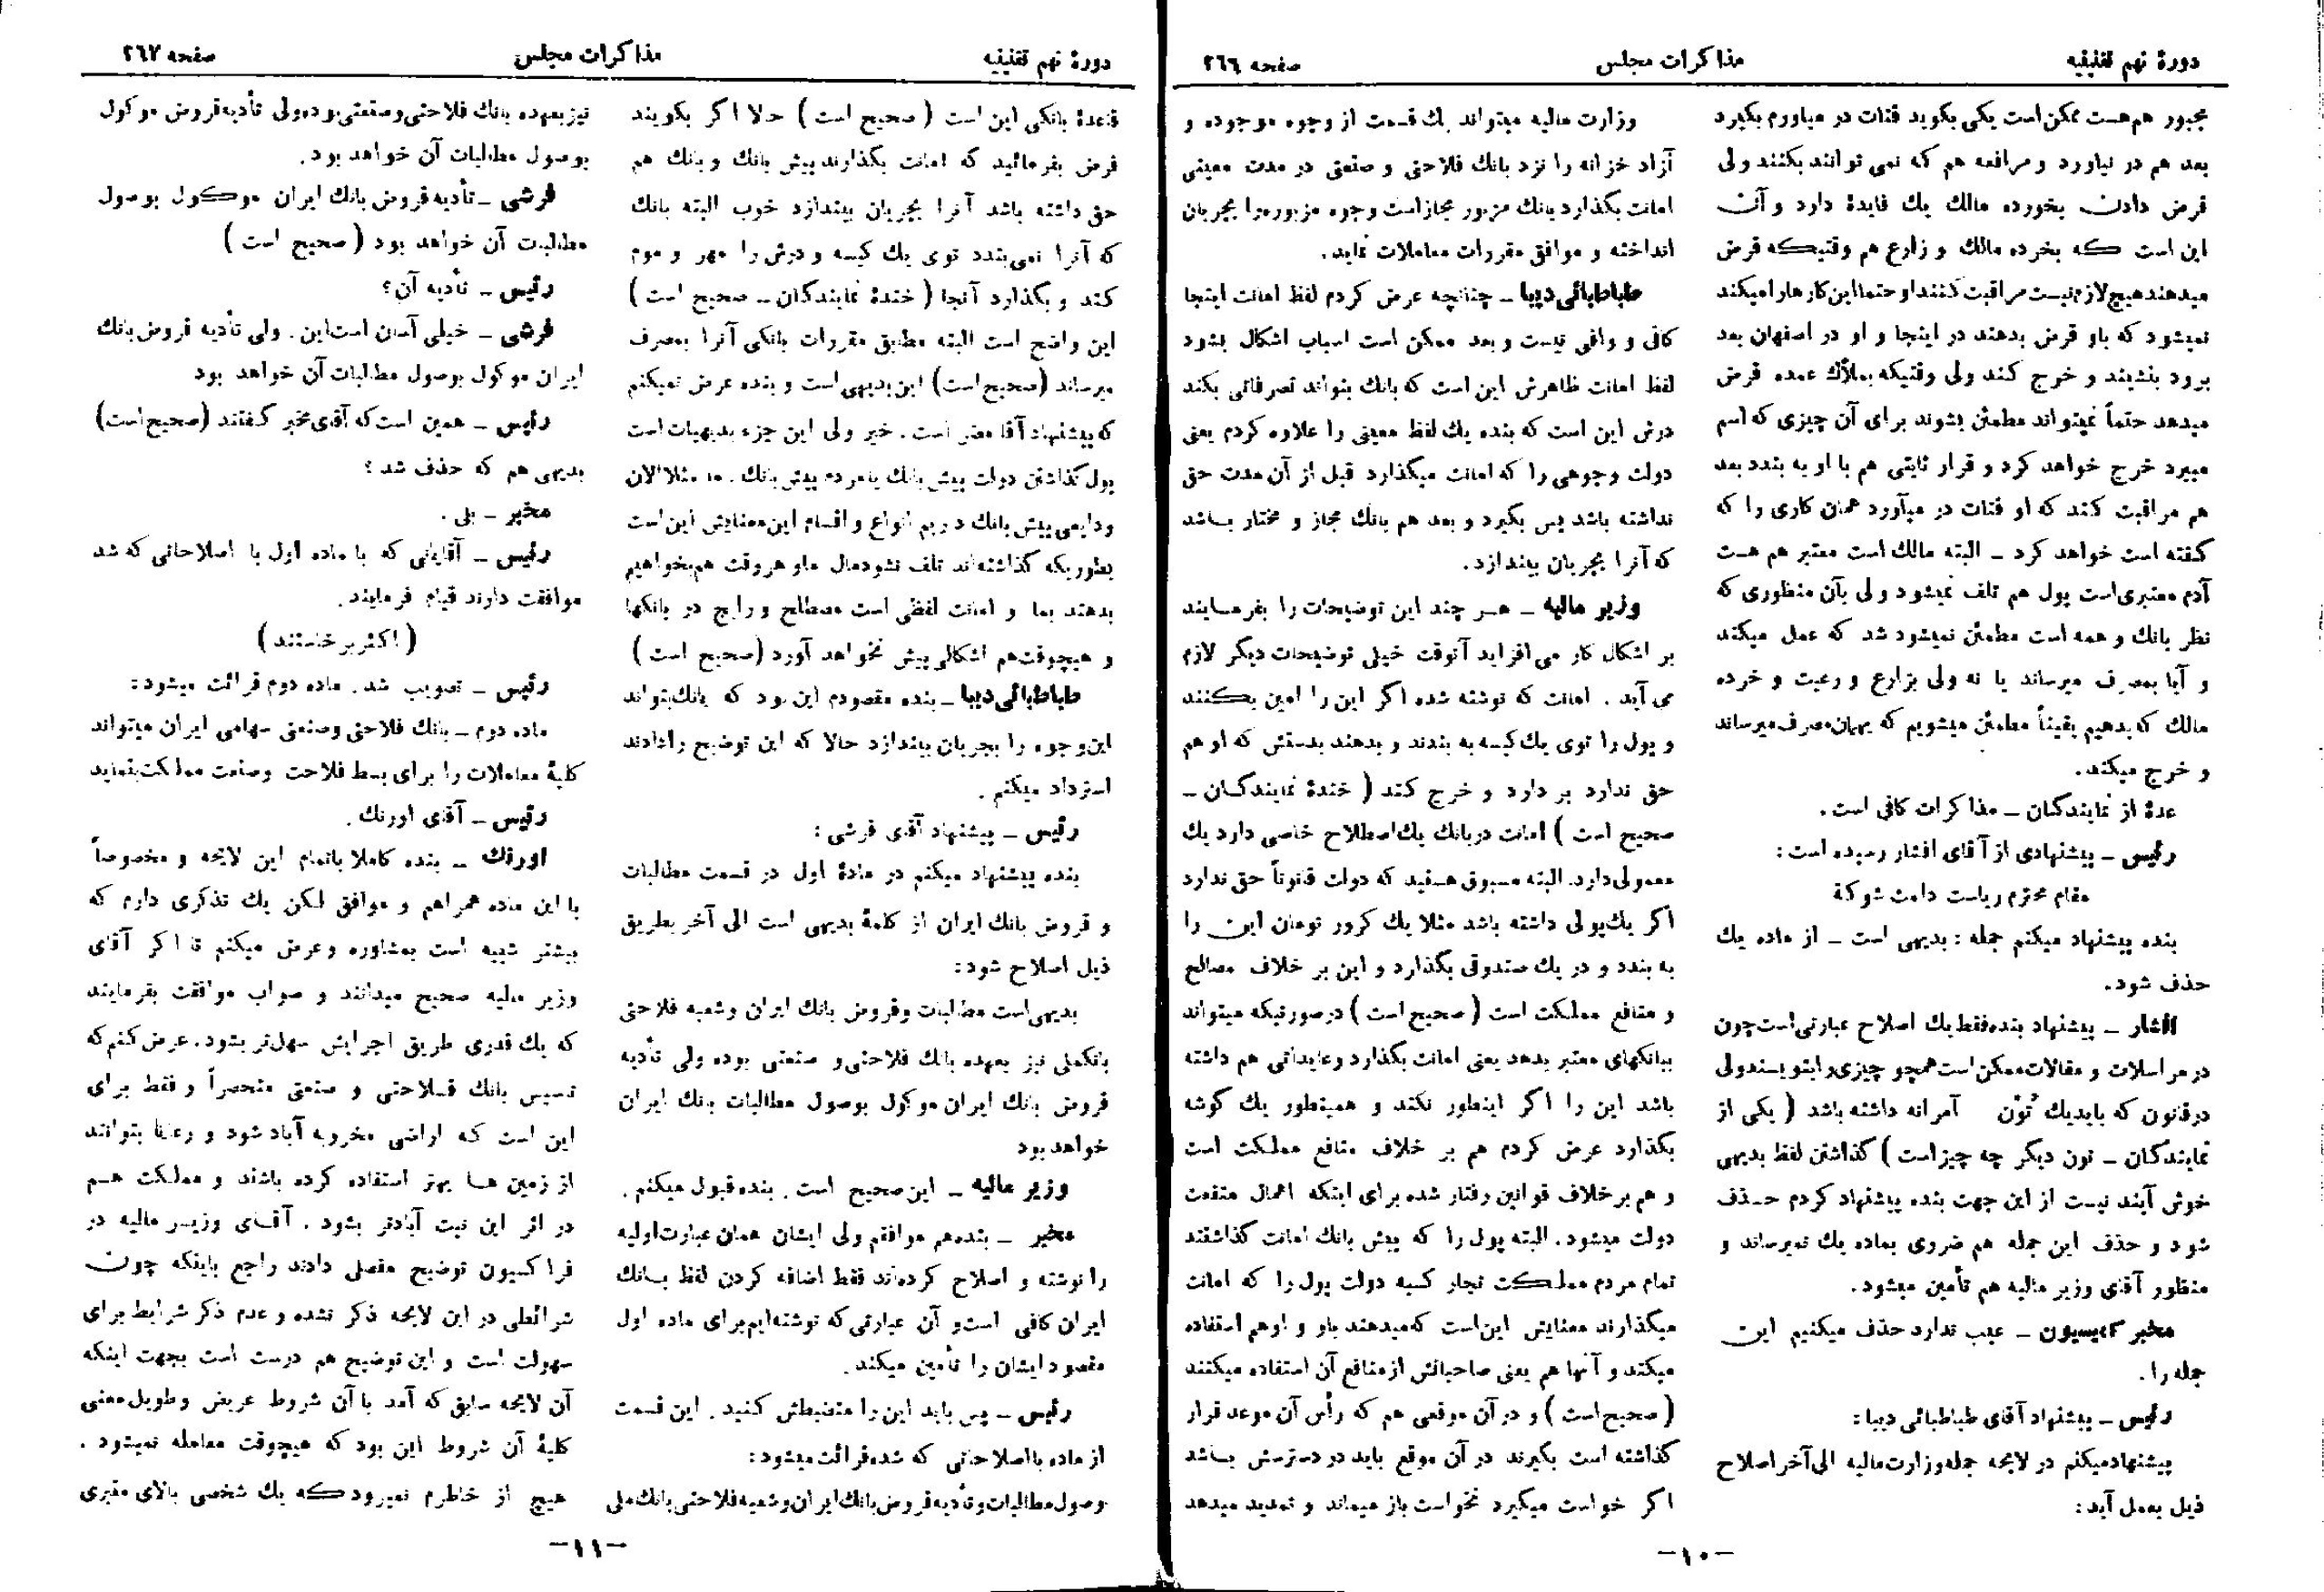 دورهٔ نهم تقنینیه
مذاکرات مجلس
صفحه ۲۶۶
مجبور هم هست ممکن است یکی بگوید قنات در میاورم بگیرد
بعد هم در نیاورد و مرافعه هم که نمی توانند بکنند ولی
قرض دادن بخورده مالك یك فایدهٔ دارد و آن
این است که بخرده مالك و زارع هم وقتیکه قرض
میدهند هیچ لازم نیست مراقبت کنند او حتما این کارها را میکند
نمیشود که باو قرض بدهند در اینجا و او در اصفهان بعد
برود بنشیند و خرج کند ولی وقتیکه بملاك عمده قرض
میدهد حتماً نمیتواند مطمئن بشوند برای آن چیزی که اسم
میبرد خرج خواهد کرد و قرار ثابتی هم با او به بندد بعد
هم مراقبت کند که او قنات در میآورد همان کاری را که
گفته است خواهد کرد ــ البته مالك است معتبر هم هست
آدم معتبری است پول هم تلف نمیشود ولی بآن منظوری که
نظر بانك و همه است مطمئن نمیشود شد که عمل میکند
و آیا بمصرف میرساند یا نه ولی بزارع و رعیت و خرده
مالك که بدهیم یقیناً مطمئن میشویم که بهمان مصرف میرساند
و خرج میکند.
عدهٔ از نمایندگان ــ مذاکرات کافی است.
رئیس ــ پیشنهادی از آقای افشار رسیده است:
مقام محترم ریاست دامت شوکة
بنده پیشنهاد میکنم جمله: بدیهی است ــ از ماده یك
حذف شود.
افشار ــ پیشنهاد بنده فقط یك اصلاح عبارتی است چون
در مراسلات و مقالات ممکن است همچو چیزی را بنویسند ولی
در قانون که باید یك تُوُن آمرانه داشته باشد ( یکی از
نمایندگان ــ تون دیگر چه چیز است ) گذاشتن لفظ بدیهی
خوش آیند نیست از این جهت بنده پیشنهاد کردم حذف
شود و حذف این جمله هم ضرری بماده یك نمیرساند و
منظور آقای وزیر مالیه هم تأمین میشود.
مخبر کمیسیون ــ عیب ندارد حذف میکنیم این
جمله را.
رئیس ــ پیشنهاد آقای طباطبائی دیبا:
پیشنهاد میکنم در لایحه جمله وزارت مالیه الی آخر اصلاح
ذیل بعمل آید:
وزارت مالیه میتواند یك قسمت از وجوه موجوده و
آزاد خزانه را نزد بانك فلاحتی و صنعتی در مدت معینی
امانت بگذارد بانك مزبور مجاز است وجوه مزبوره را بجریان
انداخته و موافق مقررات معاملات نماید.
طباطبائی دیبا ــ چنانچه عرض کردم لفظ امانت اینجا
کافی و وافی نیست و بعد ممکن است اسباب اشکال بشود
لفظ امانت ظاهرش این است که بانك بتواند تصرفاتی بکند
درش این است که بنده یك لفظ معینی را علاوه کردم یعنی
دولت وجوهی را که امانت میگذارد قبل از آن مدت حق
نداشته باشد پس بگیرد و بعد هم بانك مجاز و مختار باشد
که آنرا بجریان بیندازد.
وزیر مالیه ــ هر چند این توضیحات را بفرمایند
بر اشکال کار می افزاید آنوقت خیلی توضیحات دیگر لازم
می آید . امانت که نوشته شده اگر این را امین بکنند
و پول را توی یك کیسه به بندند و بدهند بدستش که او هم
حق ندارد بر دارد و خرج کند ( خندهٔ نمایندگان ــ
صحیح است ) امانت در بانك یك اصطلاح خاصی دارد یك
معمولی دارد. البته مسبوق هستید که دولت قانوناً حق ندارد
اگر یك پولی داشته باشد مثلا یك کرور تومان این را
به بندد و در یك صندوقی بگذارد و این بر خلاف مصالح
و منافع مملکت است ( صحیح است ) در صورتیکه میتواند
ببانکهای معتبر بدهد یعنی امانت بگذارد و عایداتی هم داشته
باشد این را اگر اینطور نکند و همینطور یك گوشه
بگذارد عرض کردم هم بر خلاف منافع مملکت است
و هم بر خلاف قوانین رفتار شده برای اینکه اهمال منفعت
دولت میشود. البته پول را که پیش بانك امانت گذاشتند
تمام مردم مملکت تجار کسبه دولت پول را که امانت
میگذارند معنایش این است که میدهند باو و او هم استفاده
میکند و آنها هم یعنی صاحبانش از منافع آن استفاده میکنند
( صحیح است ) و در آن موقعی هم که رأس آن موعد قرار
گذاشته است بگیرند در آن موقع باید در دسترسش باشد
اگر خواست میگیرد نخواست باز میماند و تمدید میدهد
ــ۱۰ــ
دورهٔ نهم تقنینیه
مذاکرات مجلس
صفحه ۲۶۷
قاعدهٔ بانکی این است ( صحیح است ) حالا اگر بگویند
قرض بفرمائید که امانت بگذارند پیش بانك و بانك هم
حق داشته باشد آنرا بجریان بیندازد خوب البته بانك
که آنرا نمی بندد توی یك کیسه و درش را مهر و موم
کند و بگذارد آنجا ( خندهٔ نمایندگان ــ صحیح است )
این واضح است البته مطابق مقررات بانکی آنرا بمصرف
میرساند (صحیح است) این بدیهی است و بنده عرض نمیکنم
که پیشنهاد آقا مضر است. خیر ولی این جزء بدیهیات است
پول گذاشتن دولت پیش بانك یا مردم پیش بانك . ما مثلا الان
ودایعی پیش بانك داریم انواع و اقسام این معنایش این است
بطوریکه گذاشته اند تلف نشود مال ما و هر وقت هم بخواهیم
بدهند بما و امانت لفظی است مصطلح و رایج در بانکها
و هیچوقت هم اشکالی پیش نخواهد آورد (صحیح است )
طباطبائی دیبا ــ بنده مقصودم این بود که بانك بتواند
این وجوه را بجریان بیندازد حالا که این توضیح را دادند
استرداد میکنم .
رئیس ــ پیشنهاد آقای قرشی:
بنده پیشنهاد میکنم در مادهٔ اول در قسمت مطالبات
و قروض بانك ایران از کلمهٔ بدیهی است الی آخر بطریق
ذیل اصلاح شود:
بدیهی است مطالبات و قروض بانك ایران و شعبه فلاحتی
بانك ملی نیز بعهده بانك فلاحتی و صنعتی بوده ولی تأدیه
قروض بانك ایران موکول بوصول مطالبات بانك ایران
خواهد بود
وزیر مالیه ــ این صحیح است . بنده قبول میکنم .
مخبر ــ بنده هم موافقم ولی ایشان همان عبارت اولیه
را نوشته و اصلاح کرده اند فقط اضافه کردن لفظ بانك
ایران کافی است و آن عبارتی که نوشته ایم برای ماده اول
مقصود ایشان را تأمین میکند.
رئیس ــ پس باید این را منضبطش کنید . این قسمت
از ماده با اصلاحاتی که شده قرائت میشود:
وصول مطالبات و تأدیه قروض بانك ایران و شعبه فلاحتی بانك ملی
نیز بعهده بانك فلاحتی و صنعتی بوده ولی تأدیه قروض موکول
بوصول مطالبات آن خواهد بود.
قرشی ــ تأدیه قروض بانك ایران موکول بوصول
مطالبات آن خواهد بود ( صحیح است )
رئیس ــ تأدیه آن؟
قرشی ــ خیلی آسان است این . ولی تأدیه قروض بانك
ایران موکول بوصول مطالبات آن خواهد بود
رئیس ــ همین است که آقای مخبر گفتند (صحیح است)
بدیهی هم که حذف شد؟
مخبر ــ بلی .
رئیس ــ آقایانی که با ماده اول با اصلاحاتی که شد
موافقت دارند قیام فرمایند.
( اکثر برخاستند )
رئیس ــ تصویب شد. ماده دوم قرائت میشود:
ماده دوم ــ بانك فلاحتی و صنعتی سهامی ایران میتواند
کلیهٔ معاملات را برای بسط فلاحت و صنعت مملکت بنماید
رئیس ــ آقای اورنك .
اورنك ــ بنده کاملا باتمام این لایحه و مخصوصاً
با این ماده همراهم و موافق لکن یك تذکری دارم که
بیشتر شبیه است بمشاوره و عرض میکنم تا اگر آقای
وزیر مالیه صحیح میدانند و صواب موافقت بفرمایند
که یك قدری طریق اجرایش سهل تر بشود. عرض کنم که
تأسیس بانك فلاحتی و صنعتی منحصراً و فقط برای
این است که اراضی مخروبه آباد شود و رعایا بتوانند
از زمین ها بهتر استفاده کرده باشند و مملکت هم
در اثر این نیت آبادتر بشود . آقای وزیر مالیه در
فراکسیون توضیح مفصلی دادند راجع باینکه چون
شرائطی در این لایحه ذکر نشده و عدم ذکر شرایط برای
سهولت است و این توضیح هم درست است بجهت اینکه
آن لایحه سابق که آمد با آن شروط عریض و طویل معنی
کلیهٔ آن شروط این بود که هیچوقت معامله نمیشود .
هیچ از خاطرم نمیرود که یك شخصی بالای مقبری
ــ۱۱ــ